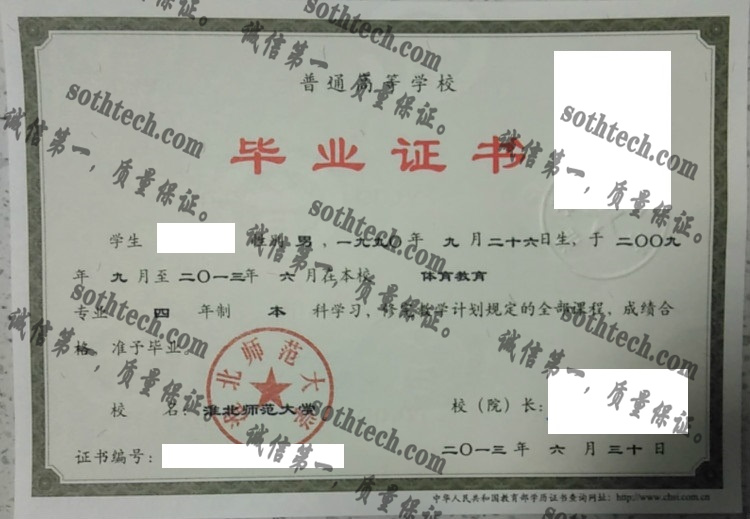 sothtech.com
诚信第一，质量保证。
普通高等学校
毕业证书
学生 性别 男，一九九〇年 九 月二十六日生，于 二〇〇九
年 九 月至 二〇一三年 六 月在本校 体育教育
专业 四 年制 本 科学习，修完教学计划规定的全部课程，成绩合
格，准予毕业。
淮北师范大学
校 名：淮北师范大学 校（院）长：
证书编号： 二〇一三年 六 月三十日
中华人民共和国教育部学历证书查询网址：http://www.chsi.com.cn
sothtech.com
诚信第一，质量保证。
sothtech.com
诚信第一，质量保证。
sothtech.com
诚信第一，质量保证。
sothtech.com
诚信第一，质量保证。
sothtech.com
诚信第一，质量保证。
sothtech.com
诚信第一，质量保证。
sothtech.com
诚信第一，质量保证。